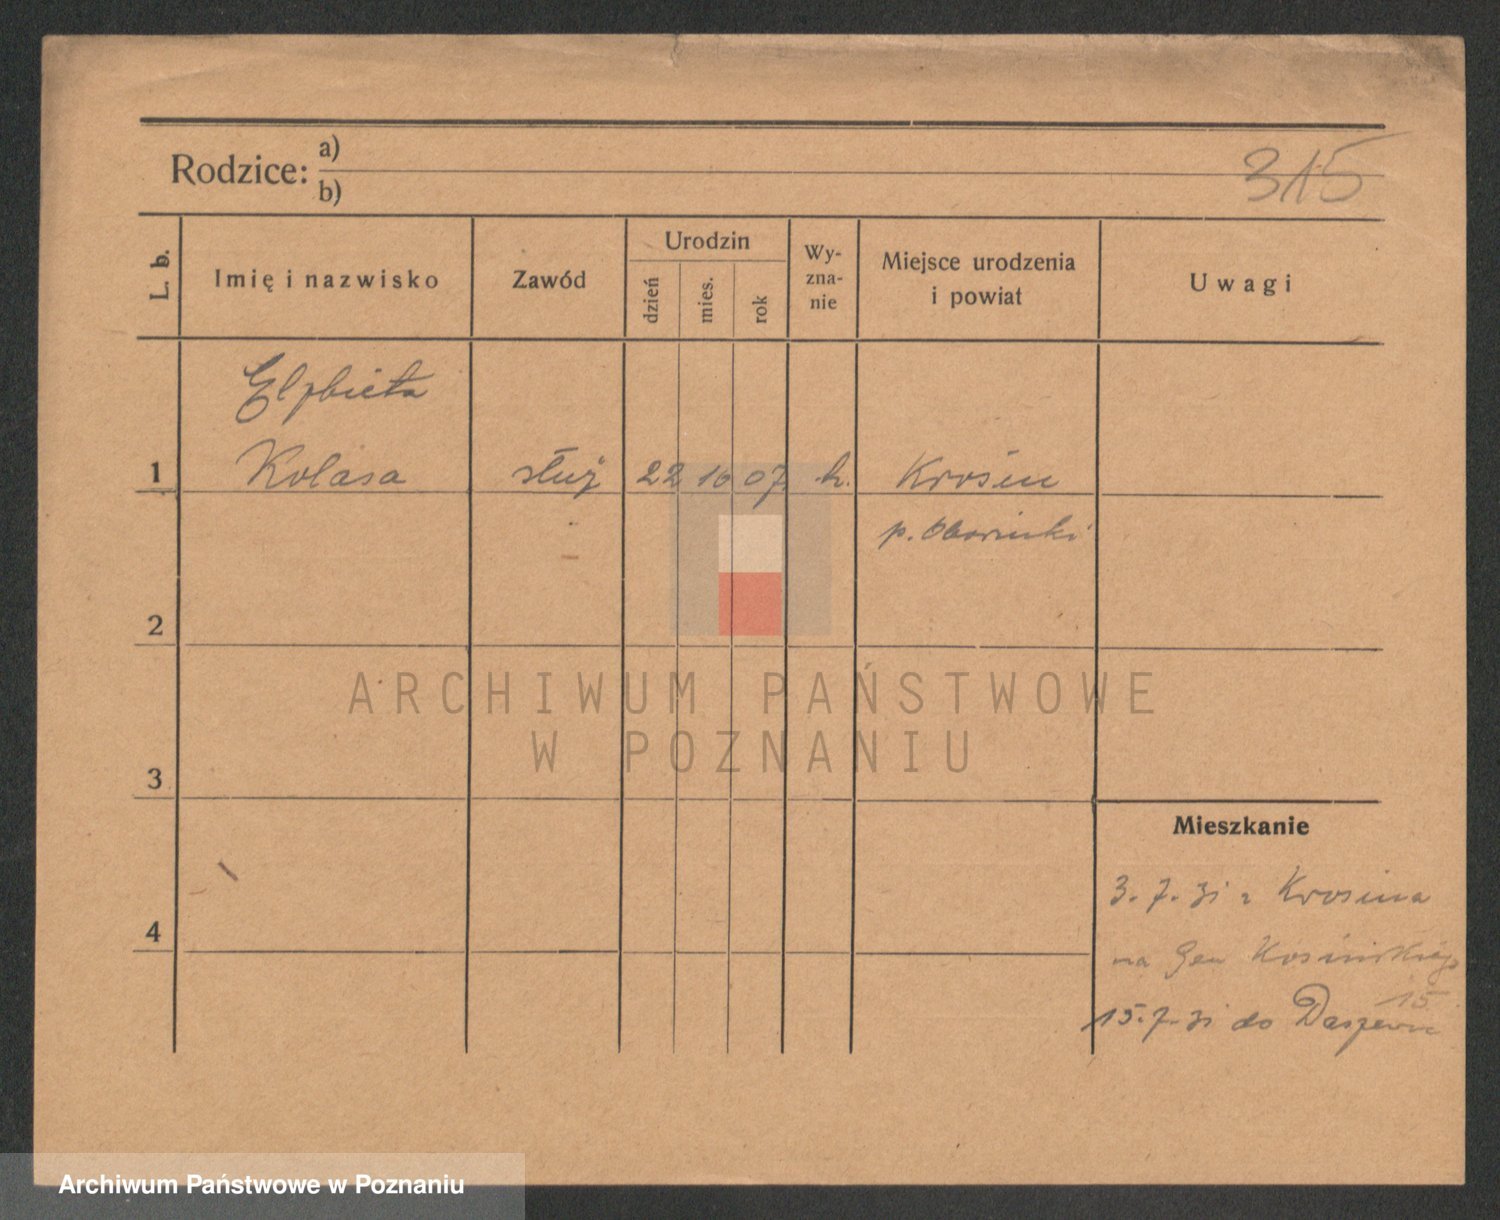 Rodzice: a)
b)
315
L. b.
Imię i nazwisko
Zawód
Urodzin
dzień
mies.
rok
Wy-
zna-
nie
Miejsce urodzenia
i powiat
Uwagi
Elżbieta
1 Kolasa służ 22 10 07 k. Krosin
p. Obornicki
2
ARCHIWUM PAŃSTWOWE
W POZNANIU
3
Mieszkanie
3.7.31 z Krosina
na Gen Kosińskiego
15
4
15.7.31 do
Archiwum Państwowe w Poznaniu